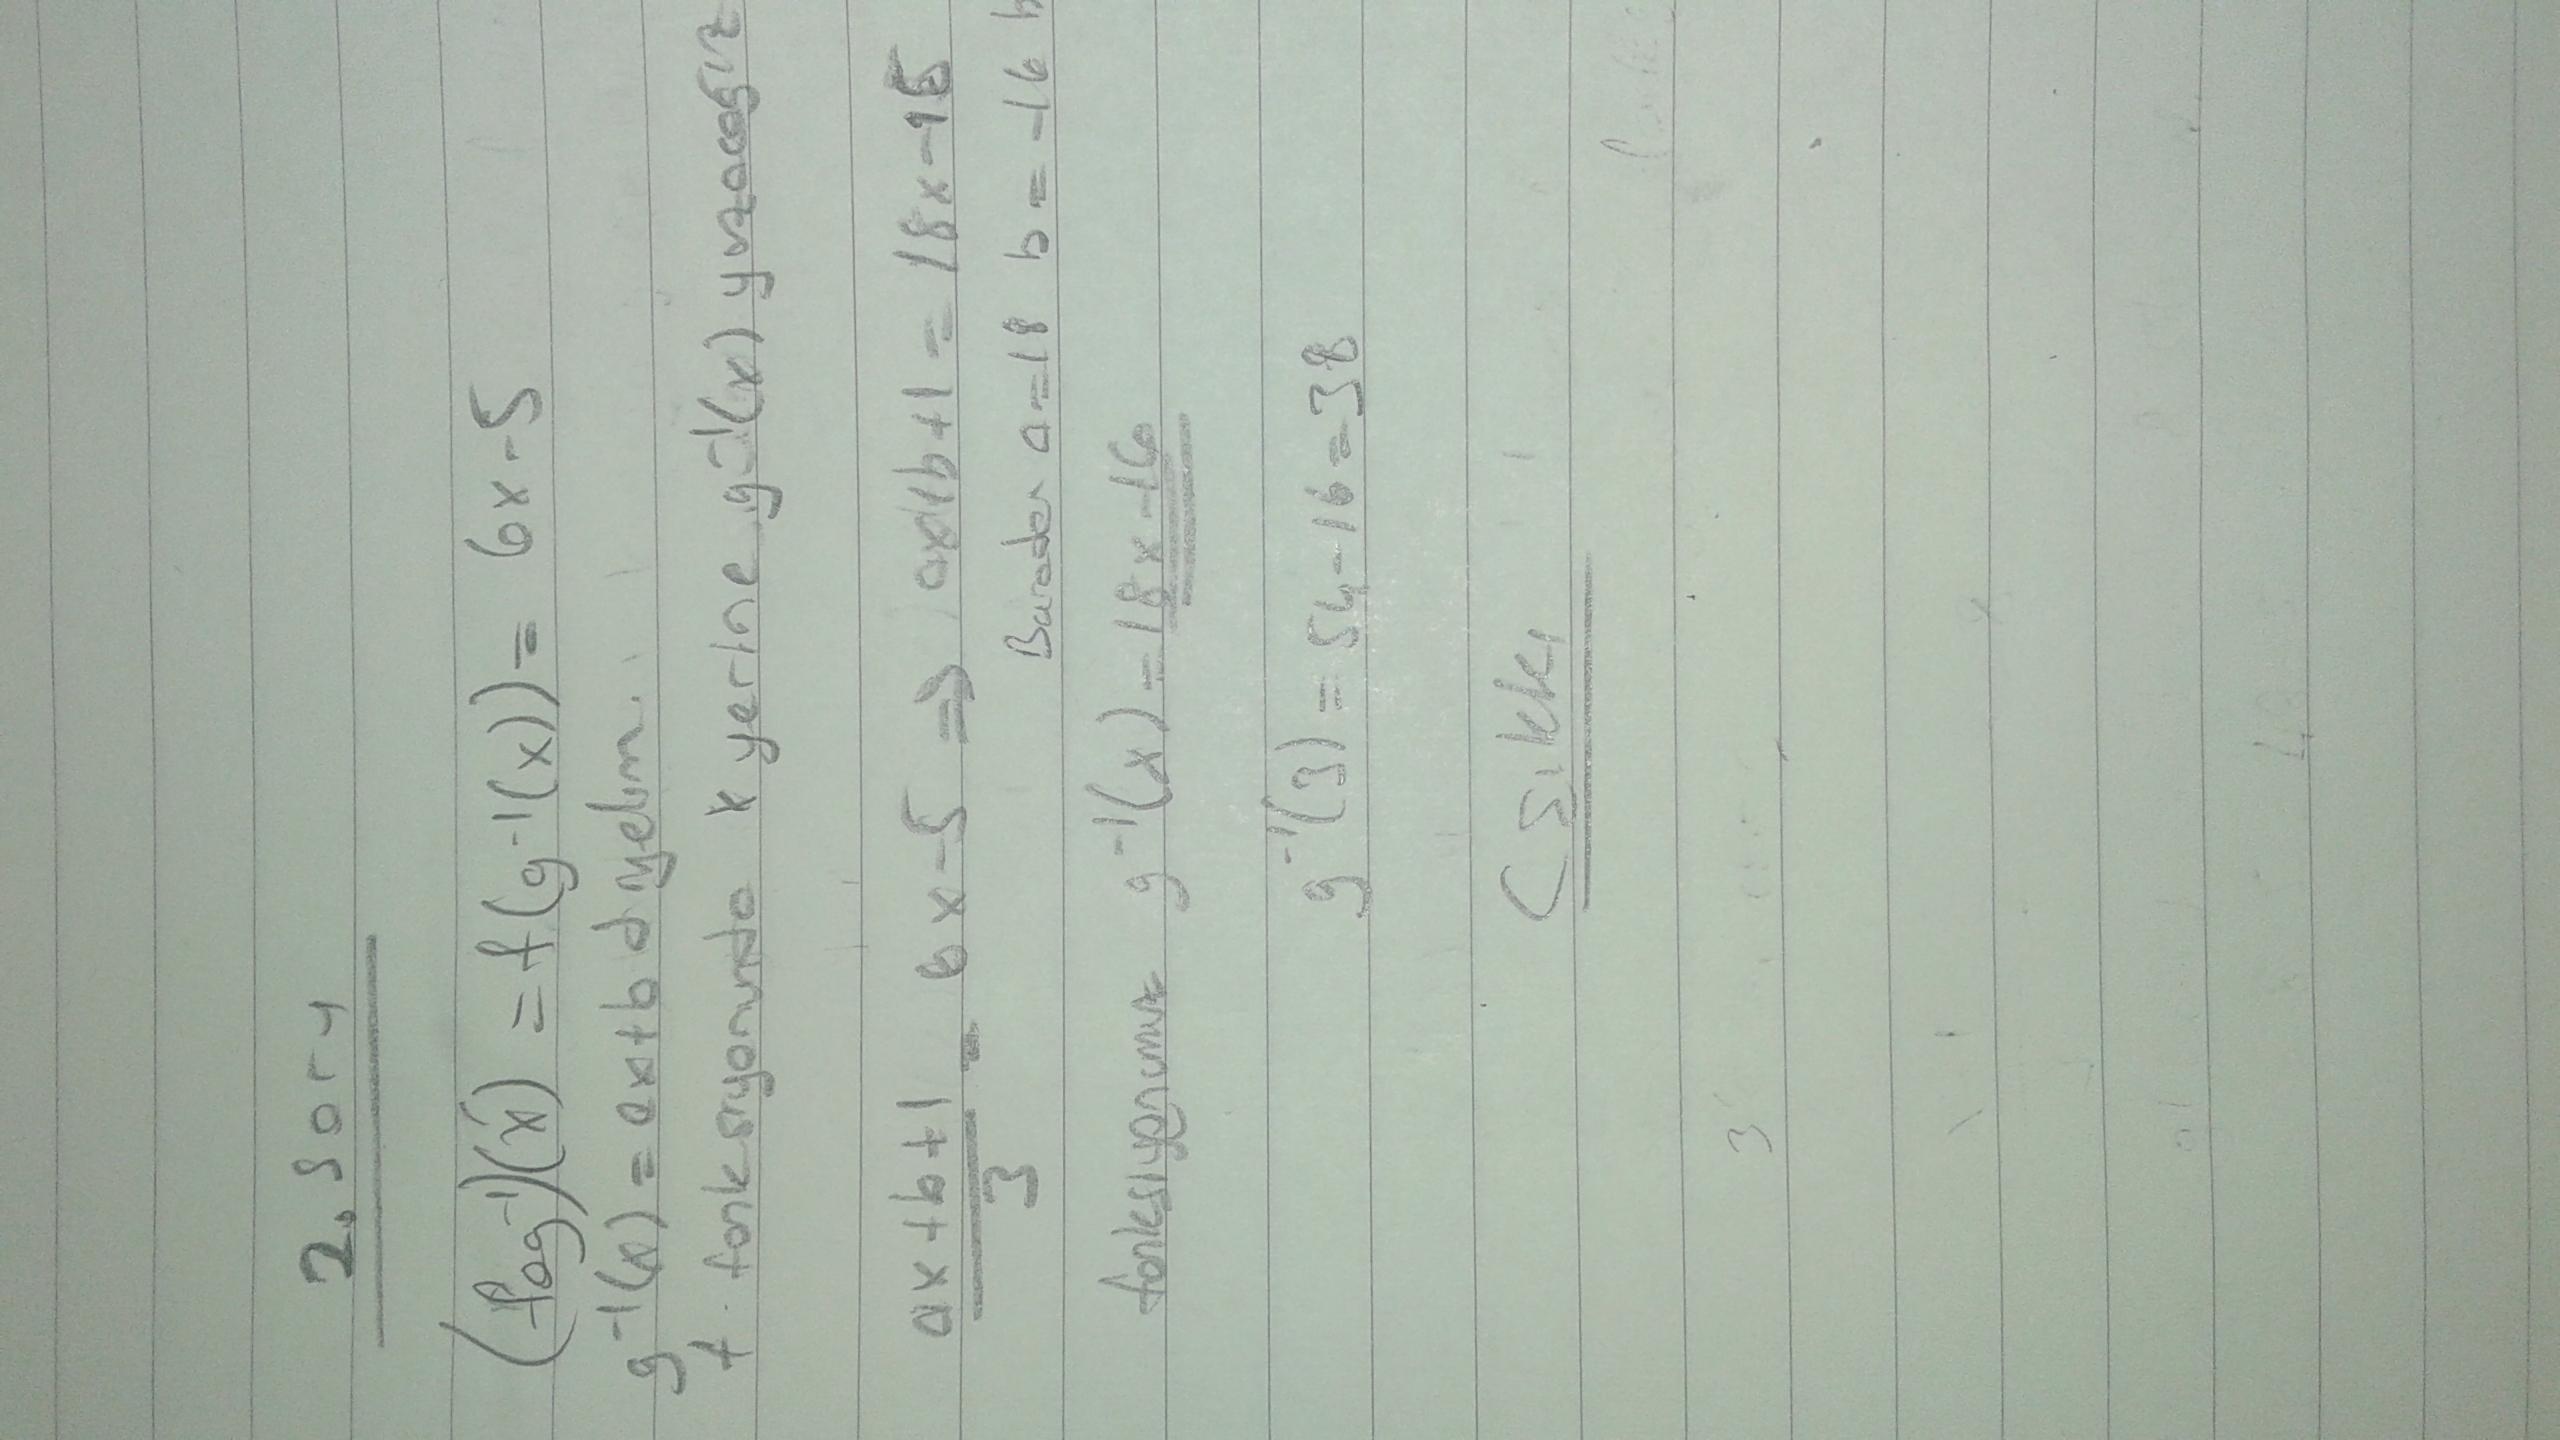 2. Soru
(fog⁻¹)(x) = f(g⁻¹(x)) = 6x-5
g⁻¹(x) = ax+b diyelim.
f. fonksiyonunda x yerine g⁻¹(x) yazacağız
ax+b+1 / 3 = 6x-5 ⇒ ax+b+1 = 18x-15
Buradan a=18 b=-16 b
fonksiyonumuz g⁻¹(x) = 18x-16
g⁻¹(3) = 54-16=38
C Şıkkı